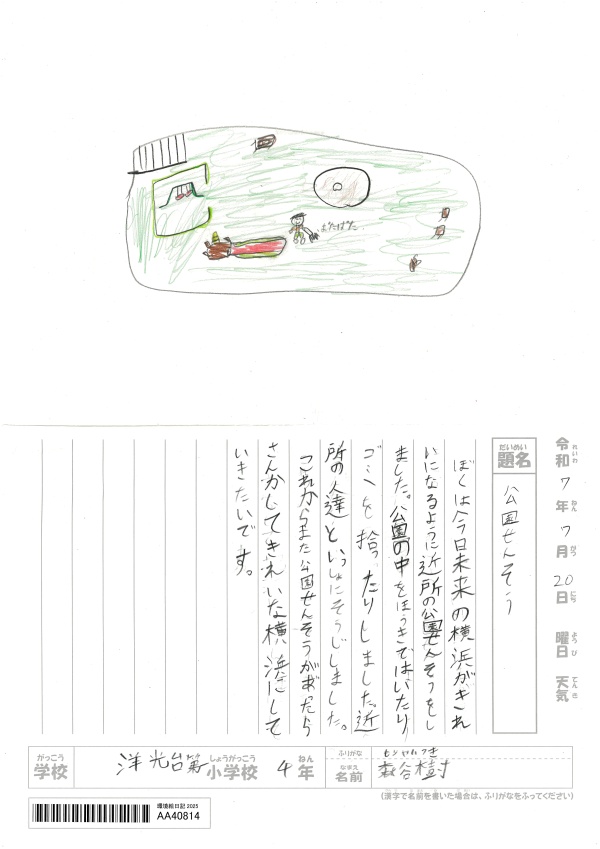 ぱたぱた
れいわの
令和7年7月20日 曜日 天気
ねん がつ にち ようび てんき
だいめい
題名
公国せんそう
ぼくは今日未来の横浜がきれ
いになるように近所の公国せんそうをし
ました。公国の中をほうきではいたり
ゴミを拾ったりしました。近
所の人達といっしょにそうじしました。
これからまた公国せんそうがあったら
さんかしてきれいな横浜にして
いきたいです。
がっこう
学校
洋光台第
しょうがっこう
小学校
4年
ねん
ふりがな
なまえ
名前
(漢字で名前を書いた場合は、ふりがなをふってください)
環境絵日記 2025
AA40814